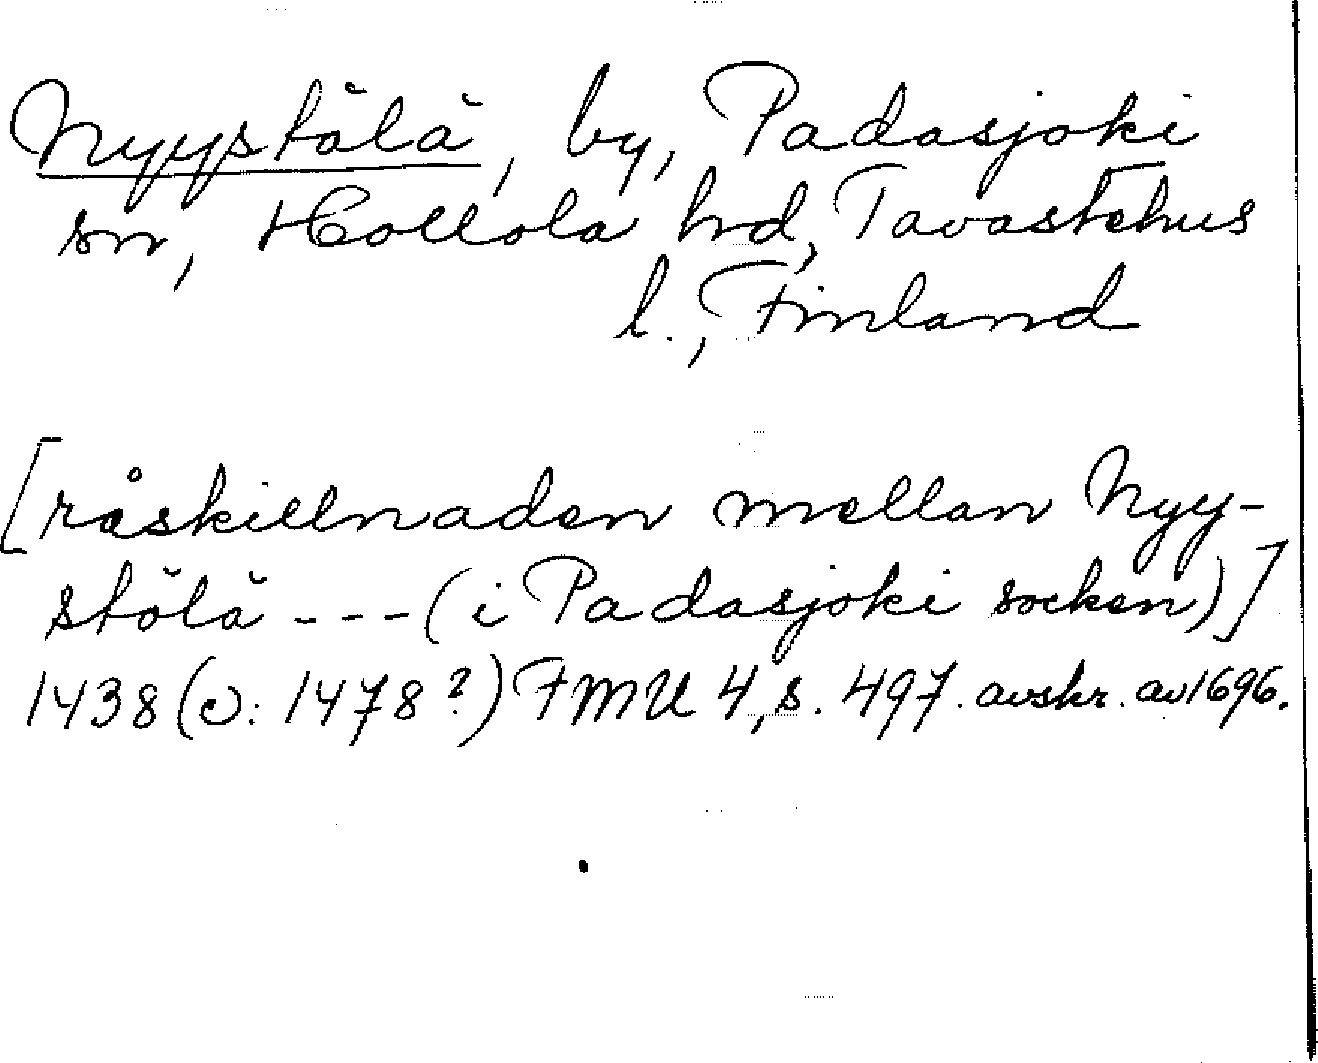 Nyystölä, by, Padasjoki
sn, Hollola hrd, Tavastehus
l., Finland
[råskillnaden mellan Nyy-
stölä --- (i Padasjoki socken)]
1438 (ɔ: 1478?) FMU 4, s. 497. avskr. av 1696.